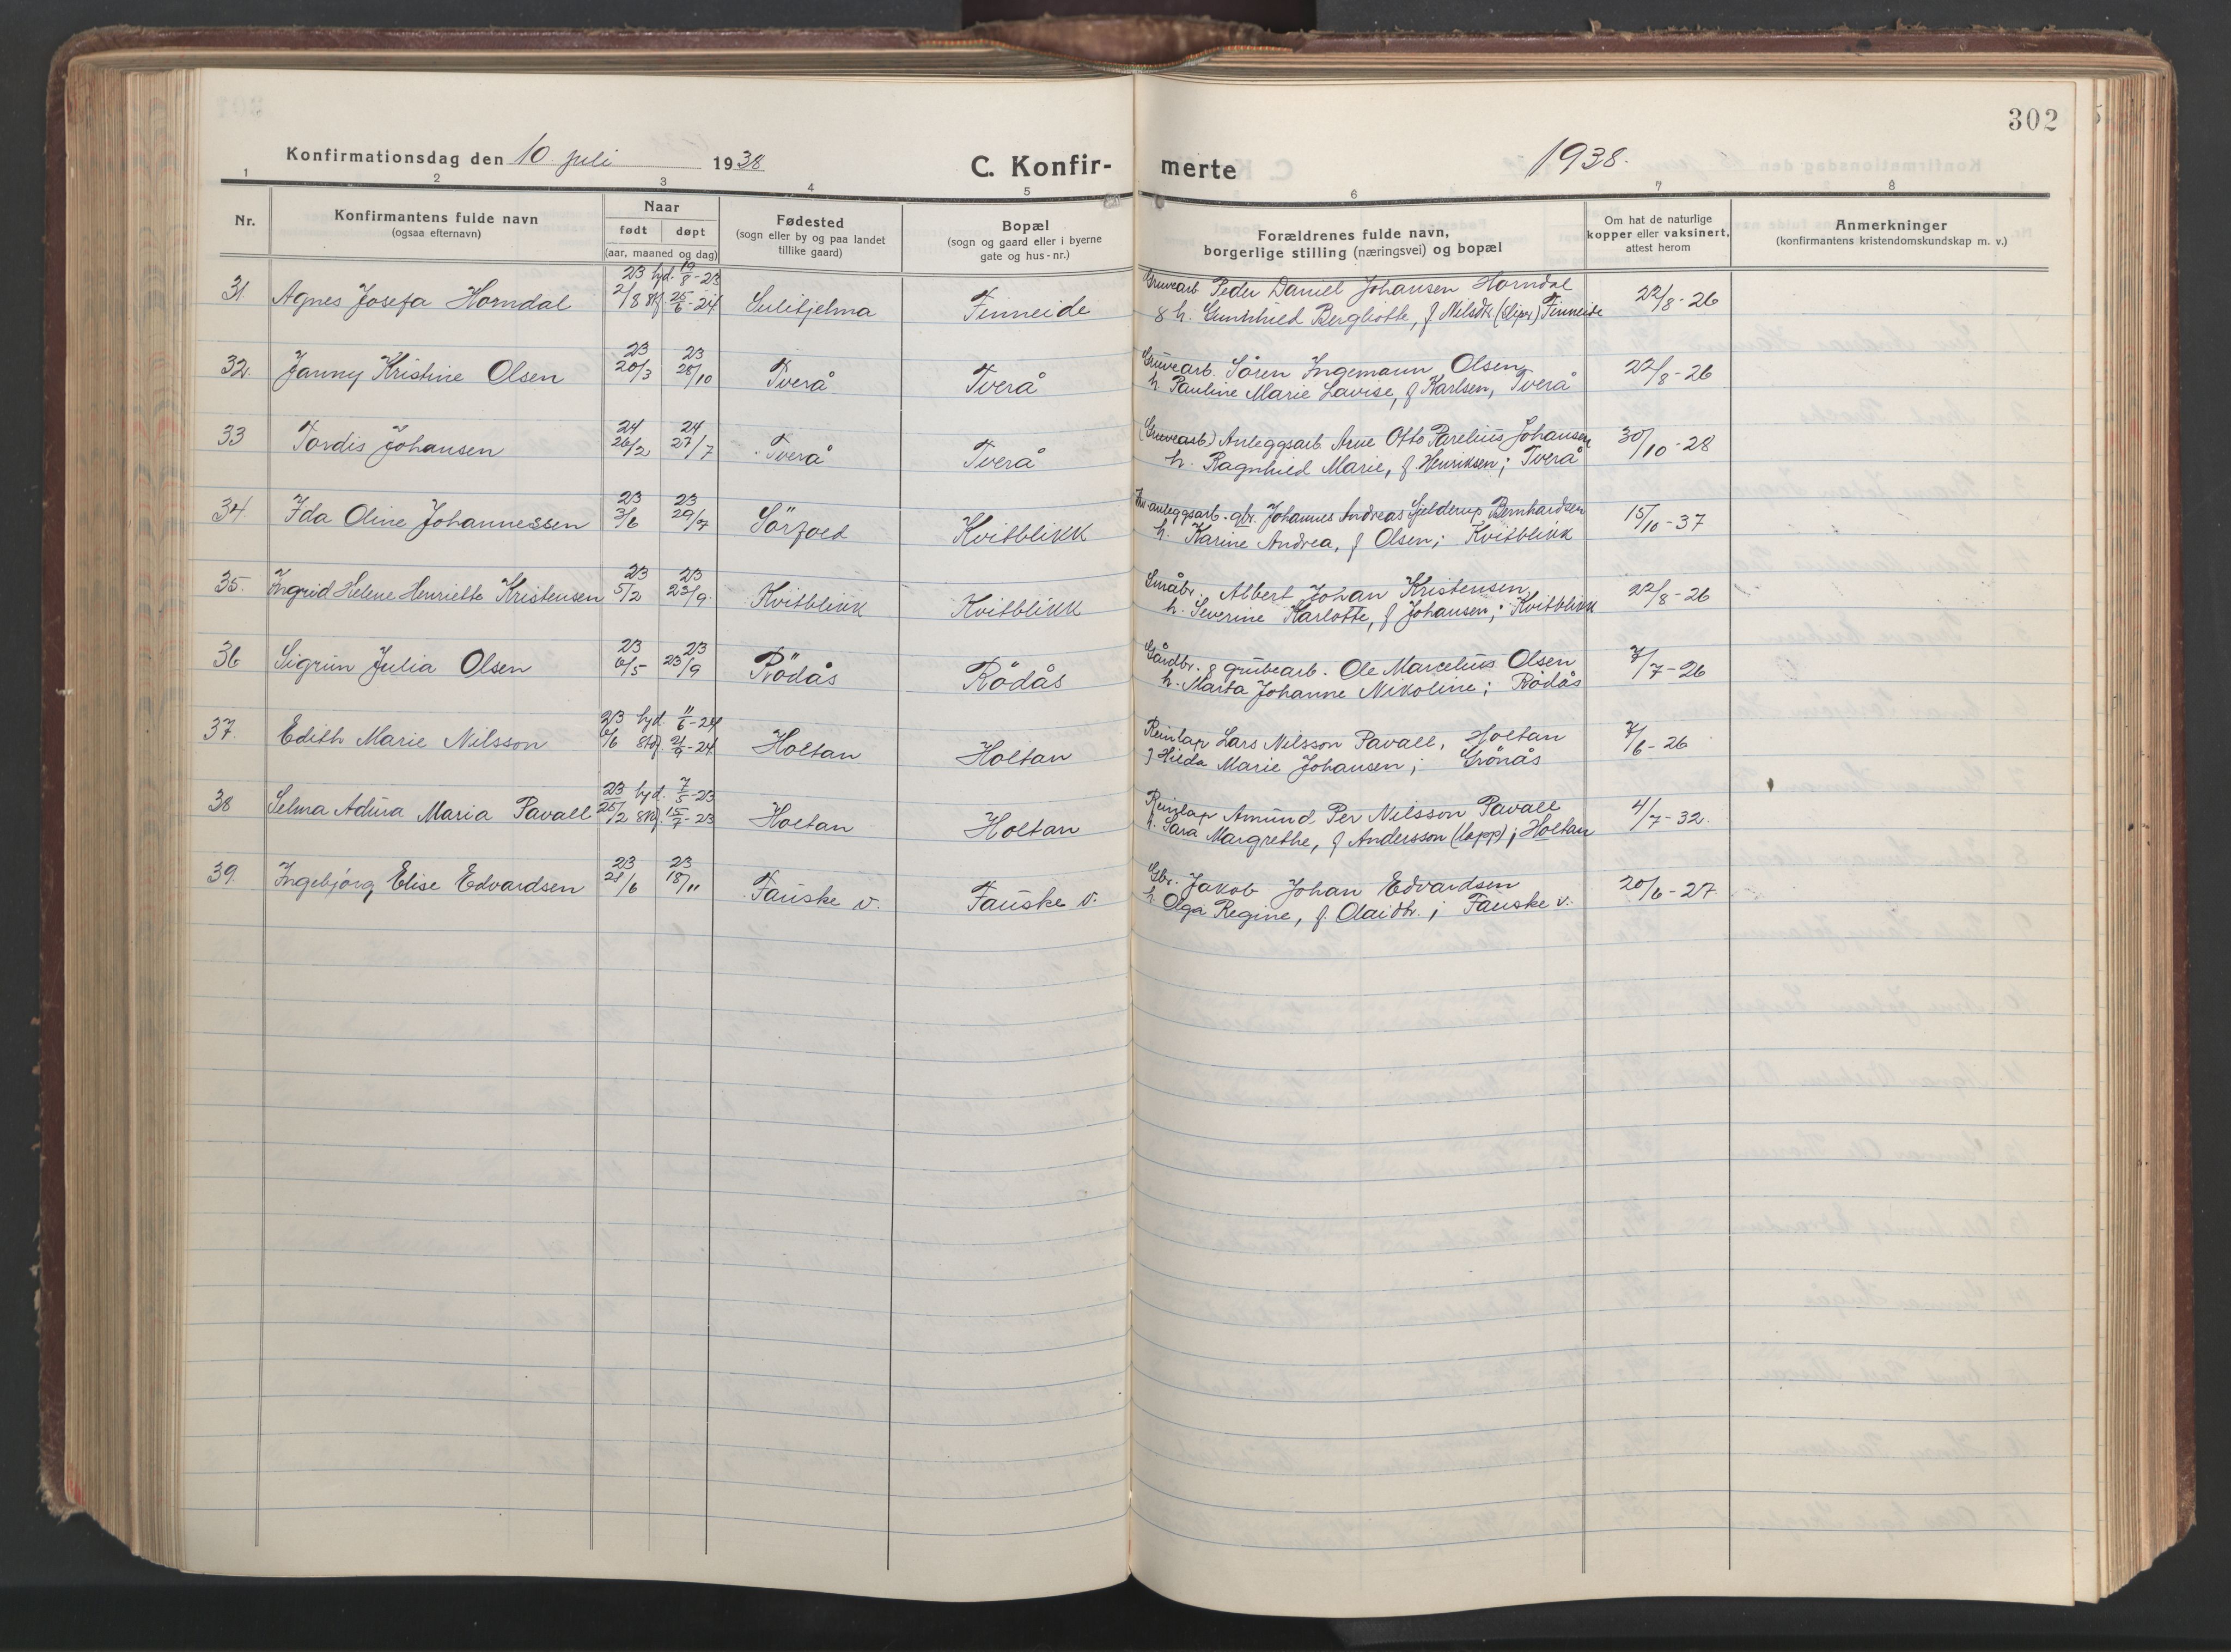 302
Konfirmationsdag den 10. juli 1938
C. Konfirmerte
1938.
1 2 3 4 5 6 7 8
Nr.
Konfirmantens fulde navn
(ogsaa efternavn)
Naar
født døpt
(aar, maaned og dag)
Fødested
(sogn eller by og paa landet
tillike gaard)
Bopæl
(sogn og gaard eller i byerne
gate og hus-nr.)
Forældrenes fulde navn,
borgerlige stilling (næringsvei) og bopæl
Om hat de naturlige
kopper eller vaksinert,
attest herom
Anmerkninger
(konfirmantens kristendomskundskap m. v.)
23 hjd. 19/8-23
31. Agnes Josefa Horndal 2/8 stf. 25/6-24 Sulitjelma Finneide Gruvearb Peder Daniel Johansen Horndal 22/8-26
& h. Gunhild Bergliotte, f Nilsdtr. Finneide
23 23
32. Janny Kristine Olsen 20/3 28/10 Tverå Tverå Gruvearb. Sören Ingemann Olsen 22/8-26
h. Pauline Marie Lavise, f Karlsen, Tverå
24 24
33 Tordis Johansen 26/2 27/7 Tverå Tverå (Gruvearb) Anleggsarb. Arne Otto Parelius Johansen 30/10-28
h. Ragnhild Marie, f Henriksen; Tverå
23 23
34. Ida Oline Johannessen 3/6 29/7 Sörfold Kvitblikk anleggsarb. gbr. Johannes Andreas Gjelderup Bernhardsen 15/10-37
h. Karine Andrea, f Olsen; Kvitblikk
23 23
35. Ingrid Helene Henriette Kristensen 5/2 23/9. Kvitblikk Kvitblikk Småbr. Albert Johan Kristensen 22/8-26
h. Severine Karlotte, f Johansen; Kvitblikk
23 23
36 Sigrun Julia Olsen 6/5 23/9 Rödås Rödås Gårdbr. & grubearb. Ole Marcelius Olsen 7/7-26
h. Marta Johanne Nikoline; Rödås
23 hjd. 11/6-24
37. Edith Marie Nilsson 6/6 stf. 21/9-24 Holtan Holtan Reinlap Lars Nilsson Pavall, Holtan 7/6-26
f Hilda Marie Johansen; Grönås
23 hjd. 7/5-23
38 Selma Adina Maria Pavall 25/2 stf. 15/7-23 Holtan Holtan Reinlap Amund Per Nilsson Pavall 4/7-32.
h. Sara Margrethe, f Andersson (lapp); Holtan
23 23
39. Ingebjörg Elise Edvardsen 28/6 18/11 Fauske v. Fauske v. Gbr. Jakob Johan Edvardsen 20/6-27.
h Olga Regine, f. Olaidtr.; Fauske v.